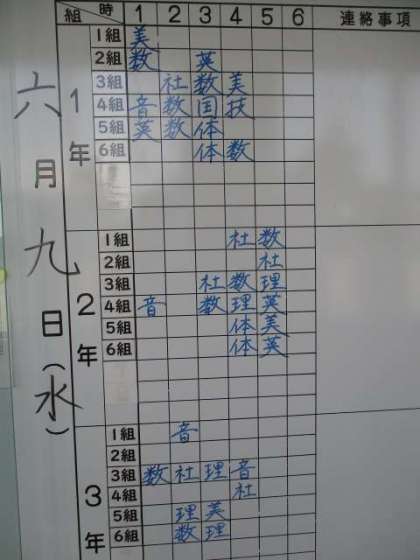 六月九日(水)
組 時 1 2 3 4 5 6 連絡事項
1年
1組 美
2組 数 英
3組 社 数 美
4組 音 数 国 技
5組 英 数 体
6組 体 数
2年
1組 社 数
2組 社
3組 社 数 理
4組 音 数 理 英
5組 体 美
6組 体 英
3年
1組 音
2組
3組 数 社 理 音
4組 社
5組 理 英
6組 数 理